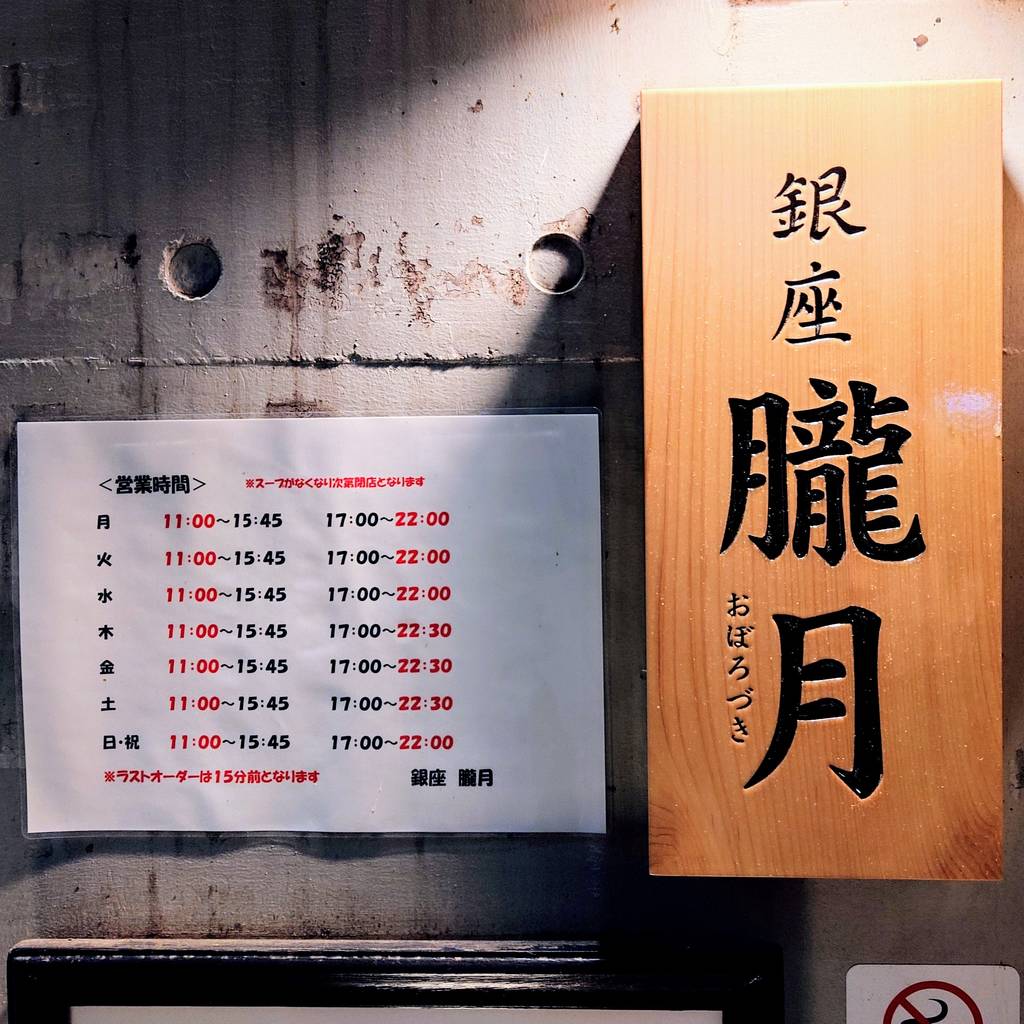 ＜営業時間＞ ※スープがなくなり次第閉店となります
月 11:00～15:45 17:00～22:00
火 11:00～15:45 17:00～22:00
水 11:00～15:45 17:00～22:00
木 11:00～15:45 17:00～22:30
金 11:00～15:45 17:00～22:30
土 11:00～15:45 17:00～22:30
日・祝 11:00～15:45 17:00～22:00
※ラストオーダーは15分前となります 銀座 朧月
銀座
朧月
おぼろづき